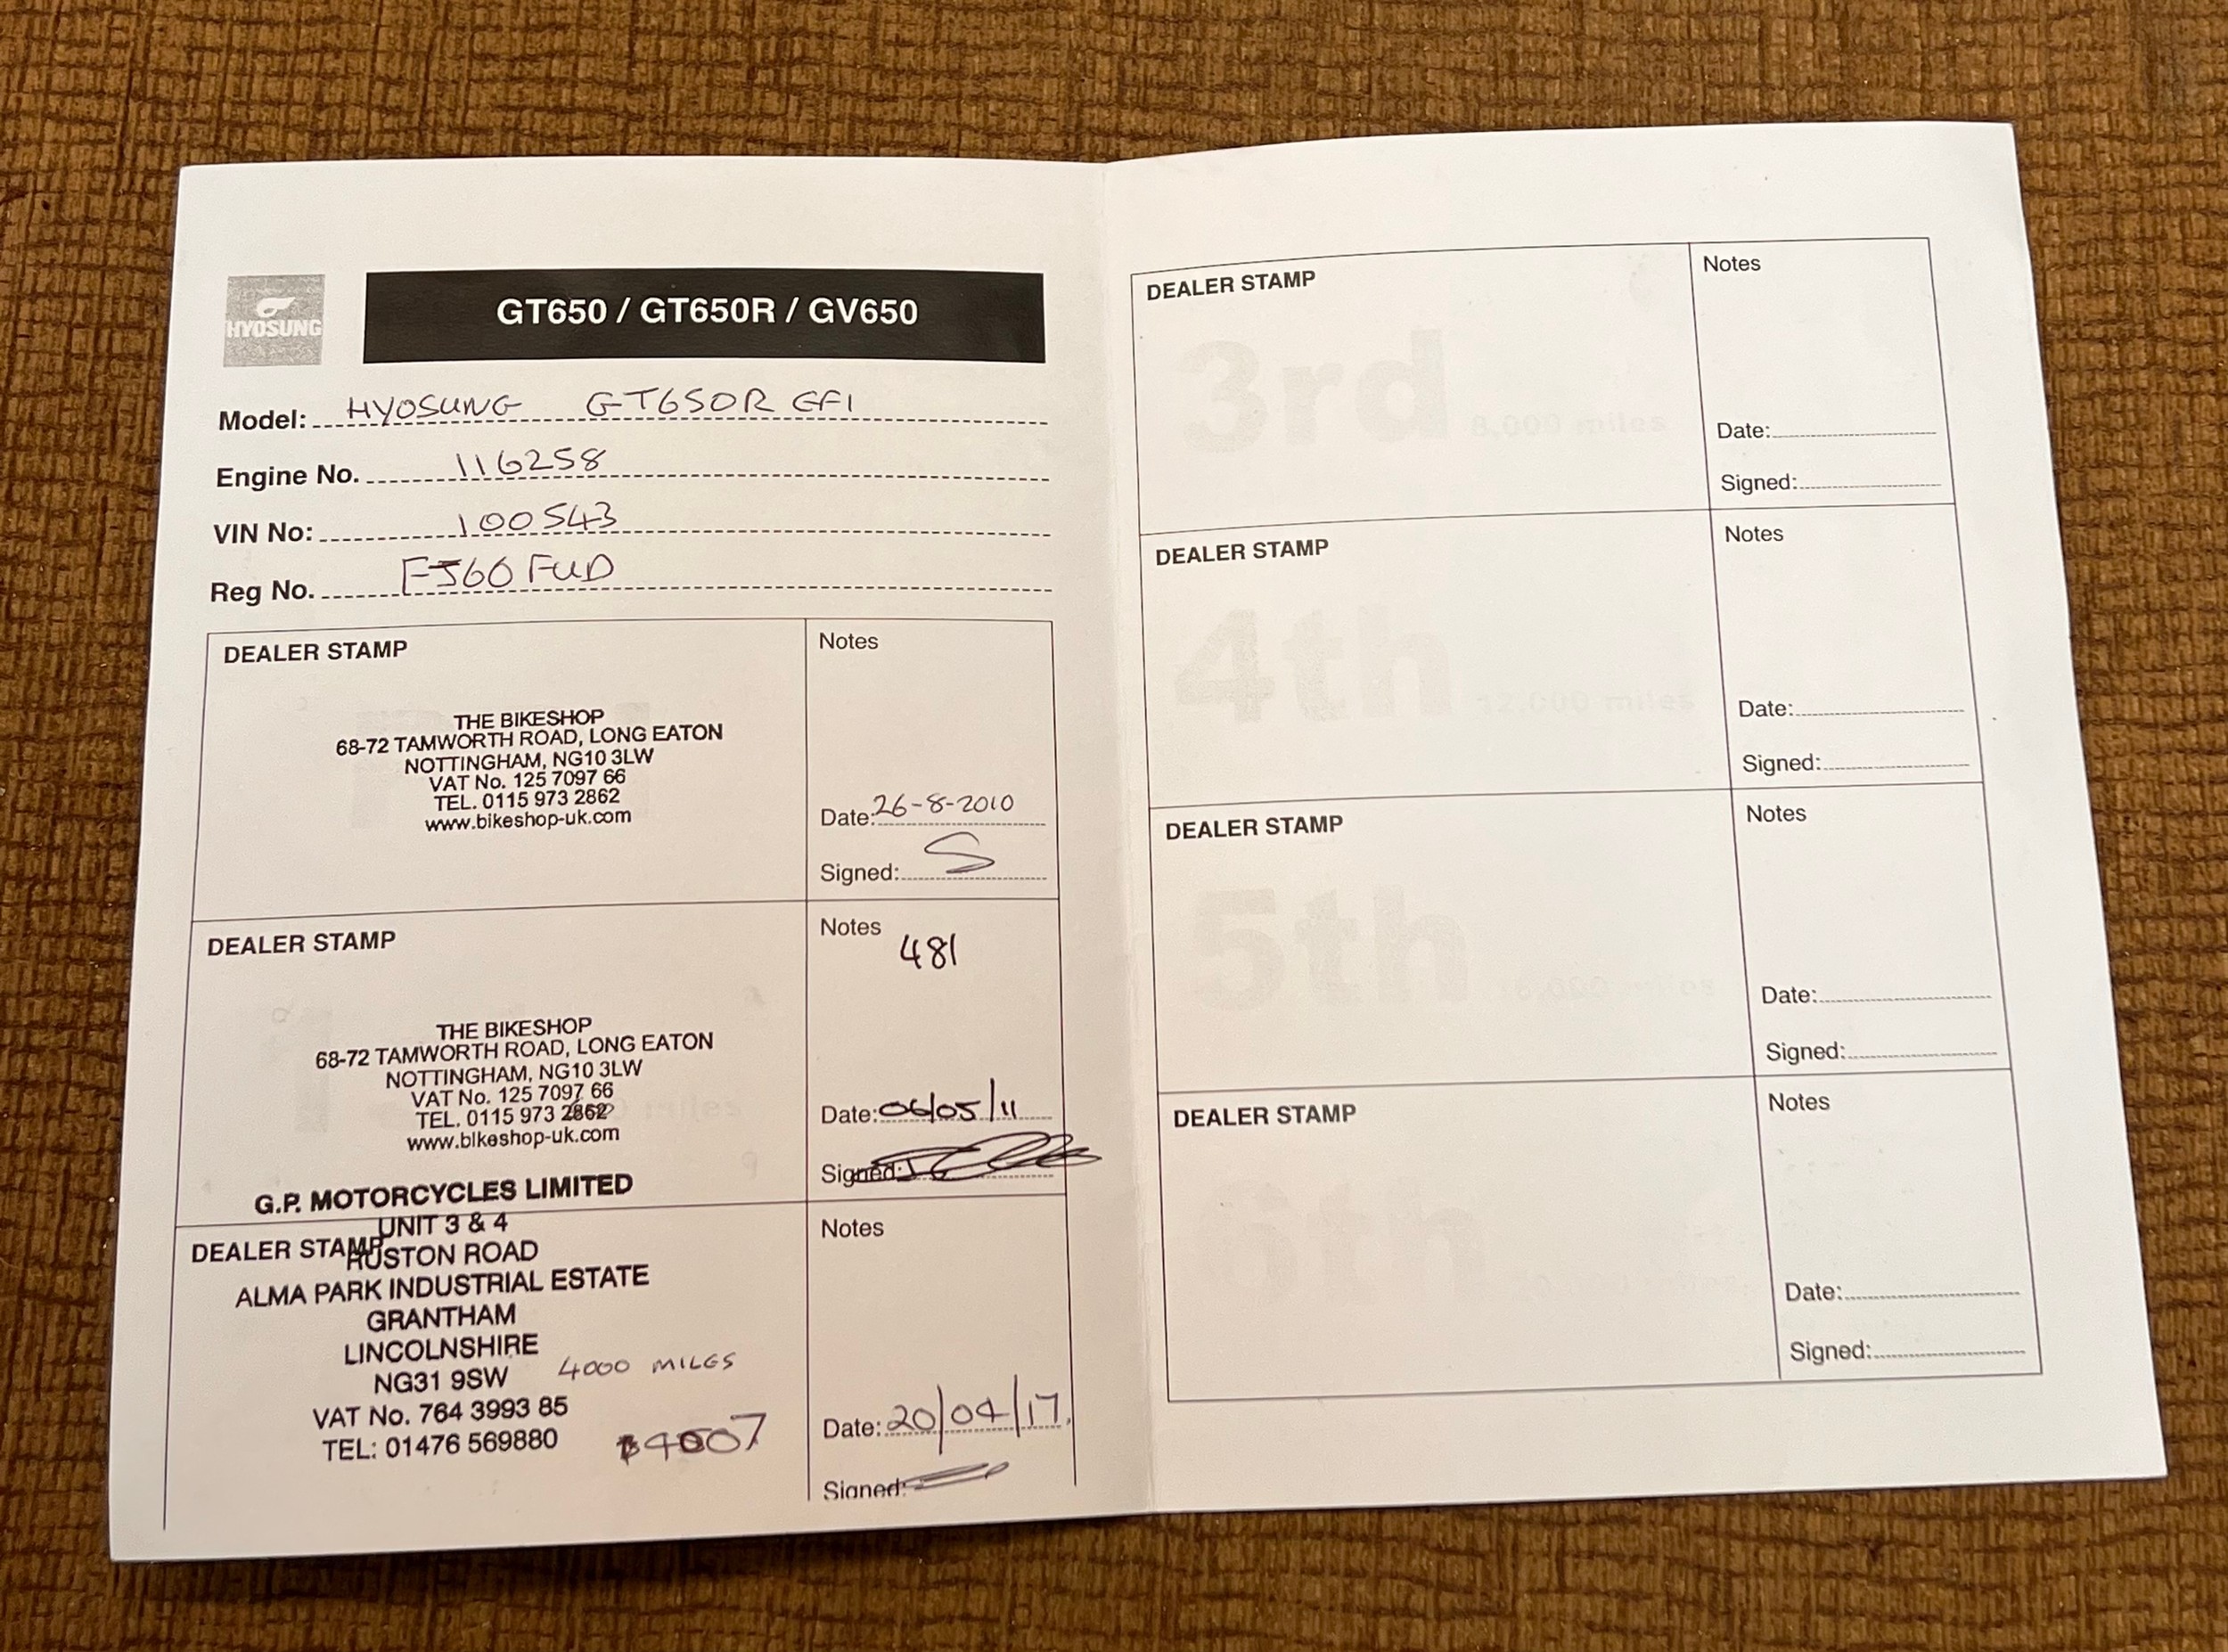 HYOSUNG
GT650 / GT650R / GV650
Model: HYOSUNG GT650R EFI
Engine No. 116258
VIN No: 100543
Reg No. FJ60 FUD
DEALER STAMP
THE BIKESHOP
68-72 TAMWORTH ROAD, LONG EATON
NOTTINGHAM, NG10 3LW
VAT No. 125 7097 66
TEL. 0115 973 2862
www.bikeshop-uk.com
Notes
Date: 26-8-2010
Signed:
DEALER STAMP
THE BIKESHOP
68-72 TAMWORTH ROAD, LONG EATON
NOTTINGHAM, NG10 3LW
VAT No. 125 7097 66
TEL. 0115 973 2862
www.bikeshop-uk.com
Notes
481
Date: 06/05/11
Signed:
DEALER STAMP
G.P. MOTORCYCLES LIMITED
UNIT 3 & 4
RUSTON ROAD
ALMA PARK INDUSTRIAL ESTATE
GRANTHAM
LINCOLNSHIRE
NG31 9SW 4000 MILES
VAT No. 764 3993 85
TEL: 01476 569880 4007
Notes
Date: 20/04/17
Signed:
DEALER STAMP
3rd 8,000 miles
Notes
Date:
Signed:
DEALER STAMP
4th 12,000 miles
Notes
Date:
Signed:
DEALER STAMP
5th 16,000 miles
Notes
Date:
Signed:
DEALER STAMP
6th
Notes
Date:
Signed: